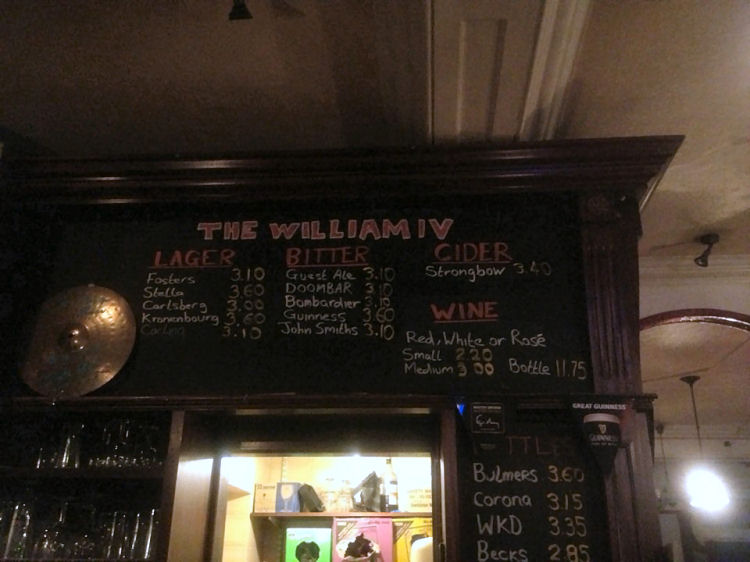 THE WILLIAM IV
LAGER
Fosters 3.10
Stella 3.60
Carlsberg 3.00
Kronenbourg 3.60
Carling 3.10
BITTER
Guest Ale 3.10
DOOMBAR 3.10
Bombardier 3.10
Guinness 3.60
John Smiths 3.10
CIDER
Strongbow 3.40
WINE
Red, White or Rosé
Small 2.20
Medium 3.00 Bottle 11.75
GREAT GUINNESS
GUINNESS
TTLE
Bulmers 3.60
Corona 3.15
WKD 3.35
Becks 2.85